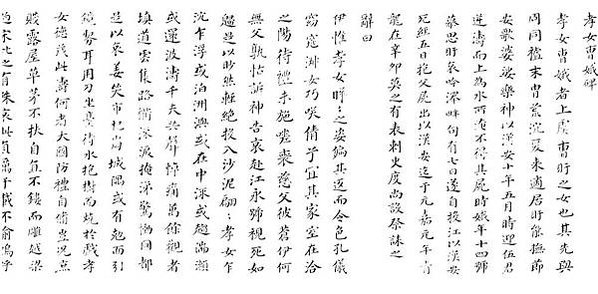 孝女曹娥碑
孝女曹娥者上虞曹盱之女也其先與
周同祖末胄荒沉爰來適居盱能撫節
安歌婆娑樂神以漢安十年五月時迎伍君
逆濤而上為水所淹不得其屍時娥年十四號
慕思盱哀吟澤畔旬有七日遂自投江以漢安
死經五日抱父屍出以漢安迄于元嘉元年青
龍在辛卯莫之有表刺史度尚設祭誄之
辭曰
伊惟孝女曄〻之姿偏其返而令色孔儀
窈窕淑女巧笑倩兮宜其家室在洽
之陽待禮未施嗟喪慈父彼蒼伊何
無父孰怙訴神告哀赴江永號視死如
歸是以眇然輕絕投入沙泥翩〻孝女乍
沉乍浮或泊洲渚或在中流或趨湍瀨
或還波濤千夫失聲悼痛萬餘觀者
填道雲集路衢流淚掩涕驚慟國都
是以哀姜哭市杞崩城隅或有剋面引
鏡剺耳用刀坐臺待水抱樹而燒於戲孝
女德茂此儔何者大國防禮自脩豈況庶
賤露屋草茅不扶自直不鏤而雕越梁
過宋比之有殊哀此貞厲千載不渝嗚呼